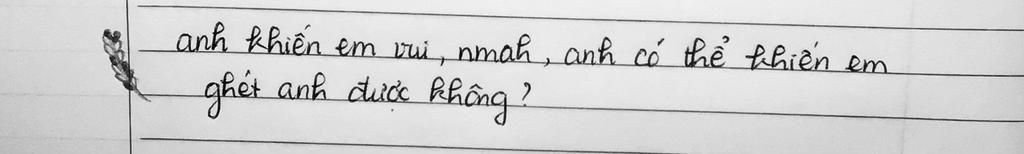 anh khiến em vui, nmah, anh có thể khiến em
ghét anh được không?